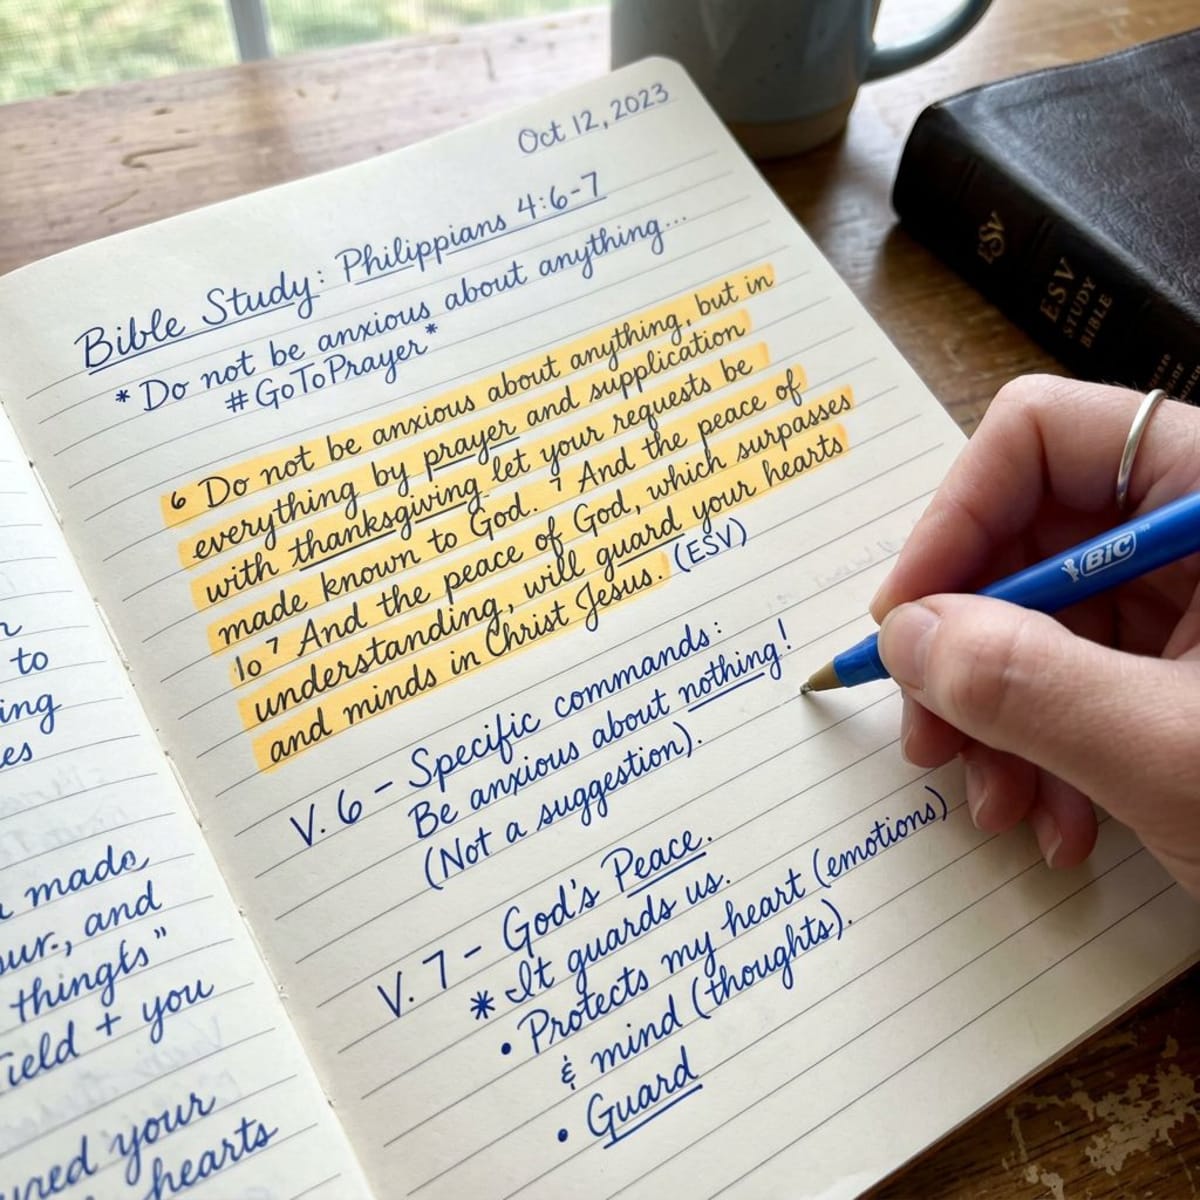 Oct 12, 2023
Bible Study: Philippians 4:6-7
*Do not be anxious about anything...
#GoToPrayer*
6 Do not be anxious about anything, but in
everything by prayer and supplication
with thanksgiving let your requests be
made known to God. 7 And the peace of
lo 7 And the peace of God, which surpasses
understanding, will guard your hearts
and minds in Christ Jesus. (ESV)
V. 6 - Specific commands:
Be anxious about nothing!
(Not a suggestion).
V. 7 - God's Peace.
* It guards us.
• Protects my heart (emotions)
& mind (thoughts).
• Guard
to
made
and
thingts"
+ you
your
hearts
ESV
ESV
STUDY
BIBLE
BIC